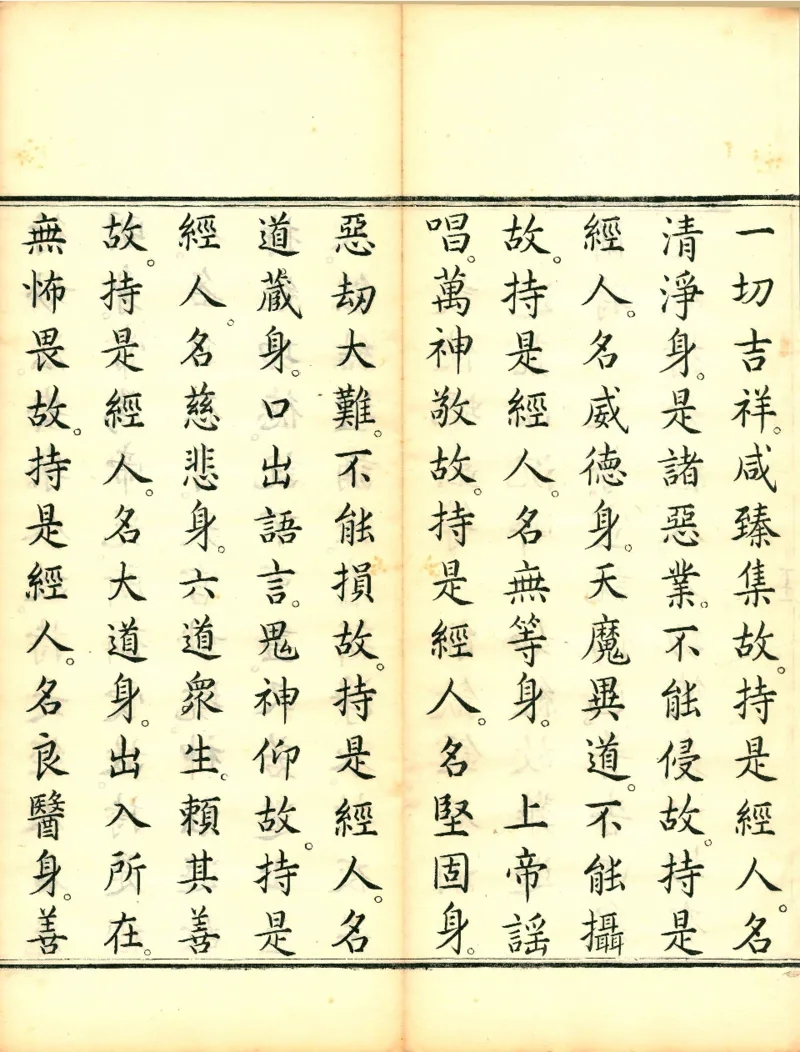 一切吉祥。咸臻集故。持是經人。名
清淨身。是諸惡業。不能侵故。持是
經人。名威德身。天魔異道。不能攝
故。持是經人。名無等身。　上帝謡
唱。萬神敬故。持是經人。名堅固身。
惡劫大難。不能損故。持是經人。名
道蔵身。口出語言。鬼神仰故。持是
經人。名慈悲身。六道衆生。頼其善
故。持是經人。名大道身。出入所在。
無怖畏故。持是經人。名良醫身。善